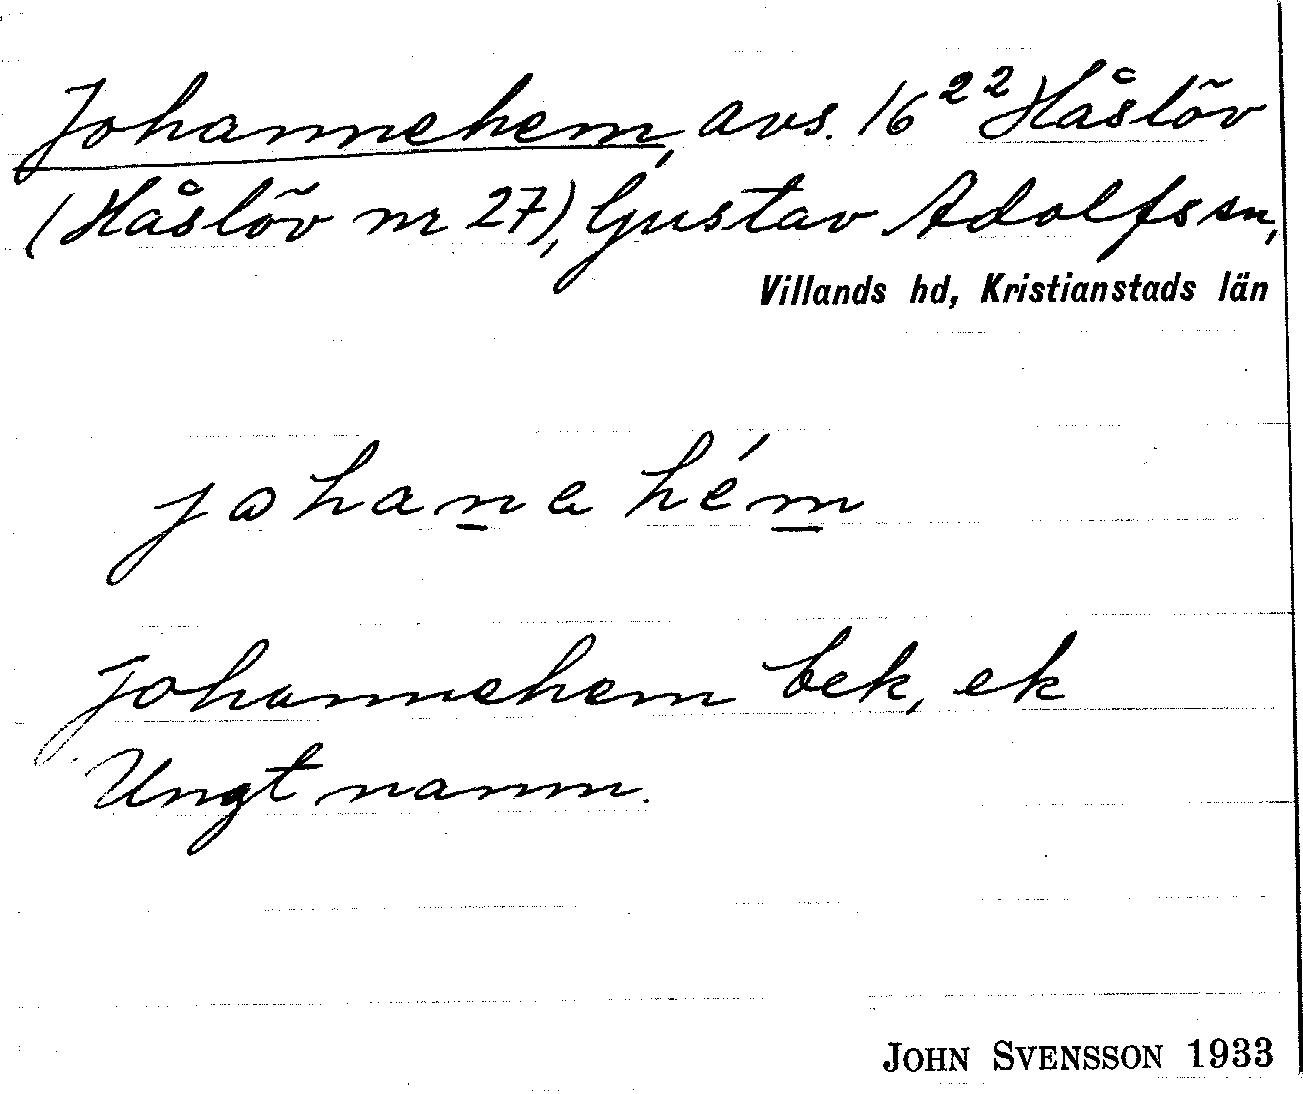 Johannehem, avs. 16²² Håslöv
(Håslöv nr 27), Gustav Adolfs sn,
Villands hd, Kristianstads län
johana hém
Johannehem bek, ek
Ungt namn.
JOHN SVENSSON 1933